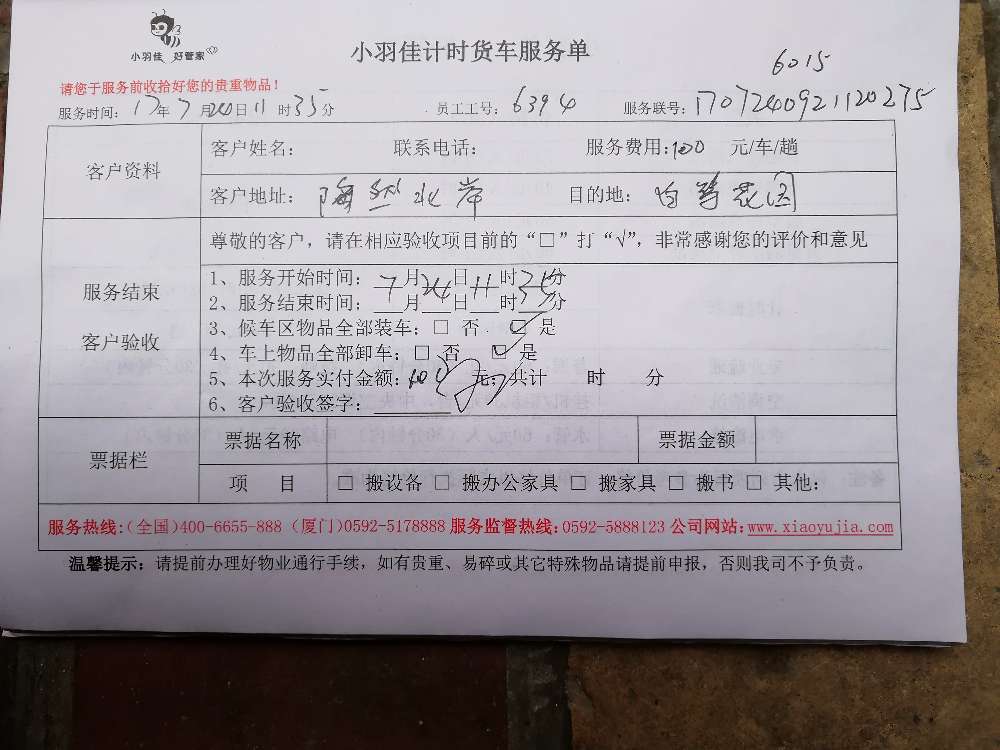 小羽佳 好管家
小羽佳计时货车服务单
6015
请您于服务前收拾好您的贵重物品！
服务时间：17年7月24日11时35分 员工工号：6394 服务联号：1707240921120275
客户资料
客户姓名： 联系电话： 服务费用：100 元/车/趟
客户地址： 水岸 目的地： 白鹭花园
服务结束
客户验收
尊敬的客户，请在相应验收项目前的“□”打“√”，非常感谢您的评价和意见
1、服务开始时间：7月24日11时 分
2、服务结束时间： 月 日 时 分
3、候车区物品全部装车：□ 否 □ 是
4、车上物品全部卸车：□ 否 □ 是
5、本次服务实付金额：100 元；共计 时 分
6、客户验收签字：
票据栏
票据名称 票据金额
项 目 □ 搬设备 □ 搬办公家具 □ 搬家具 □ 搬书 □ 其他：
服务热线：（全国）400-6655-888（厦门）0592-5178888 服务监督热线：0592-5888123 公司网站：www.xiaoyujia.com
温馨提示：请提前办理好物业通行手续，如有贵重、易碎或其它特殊物品请提前申报，否则我司不予负责。